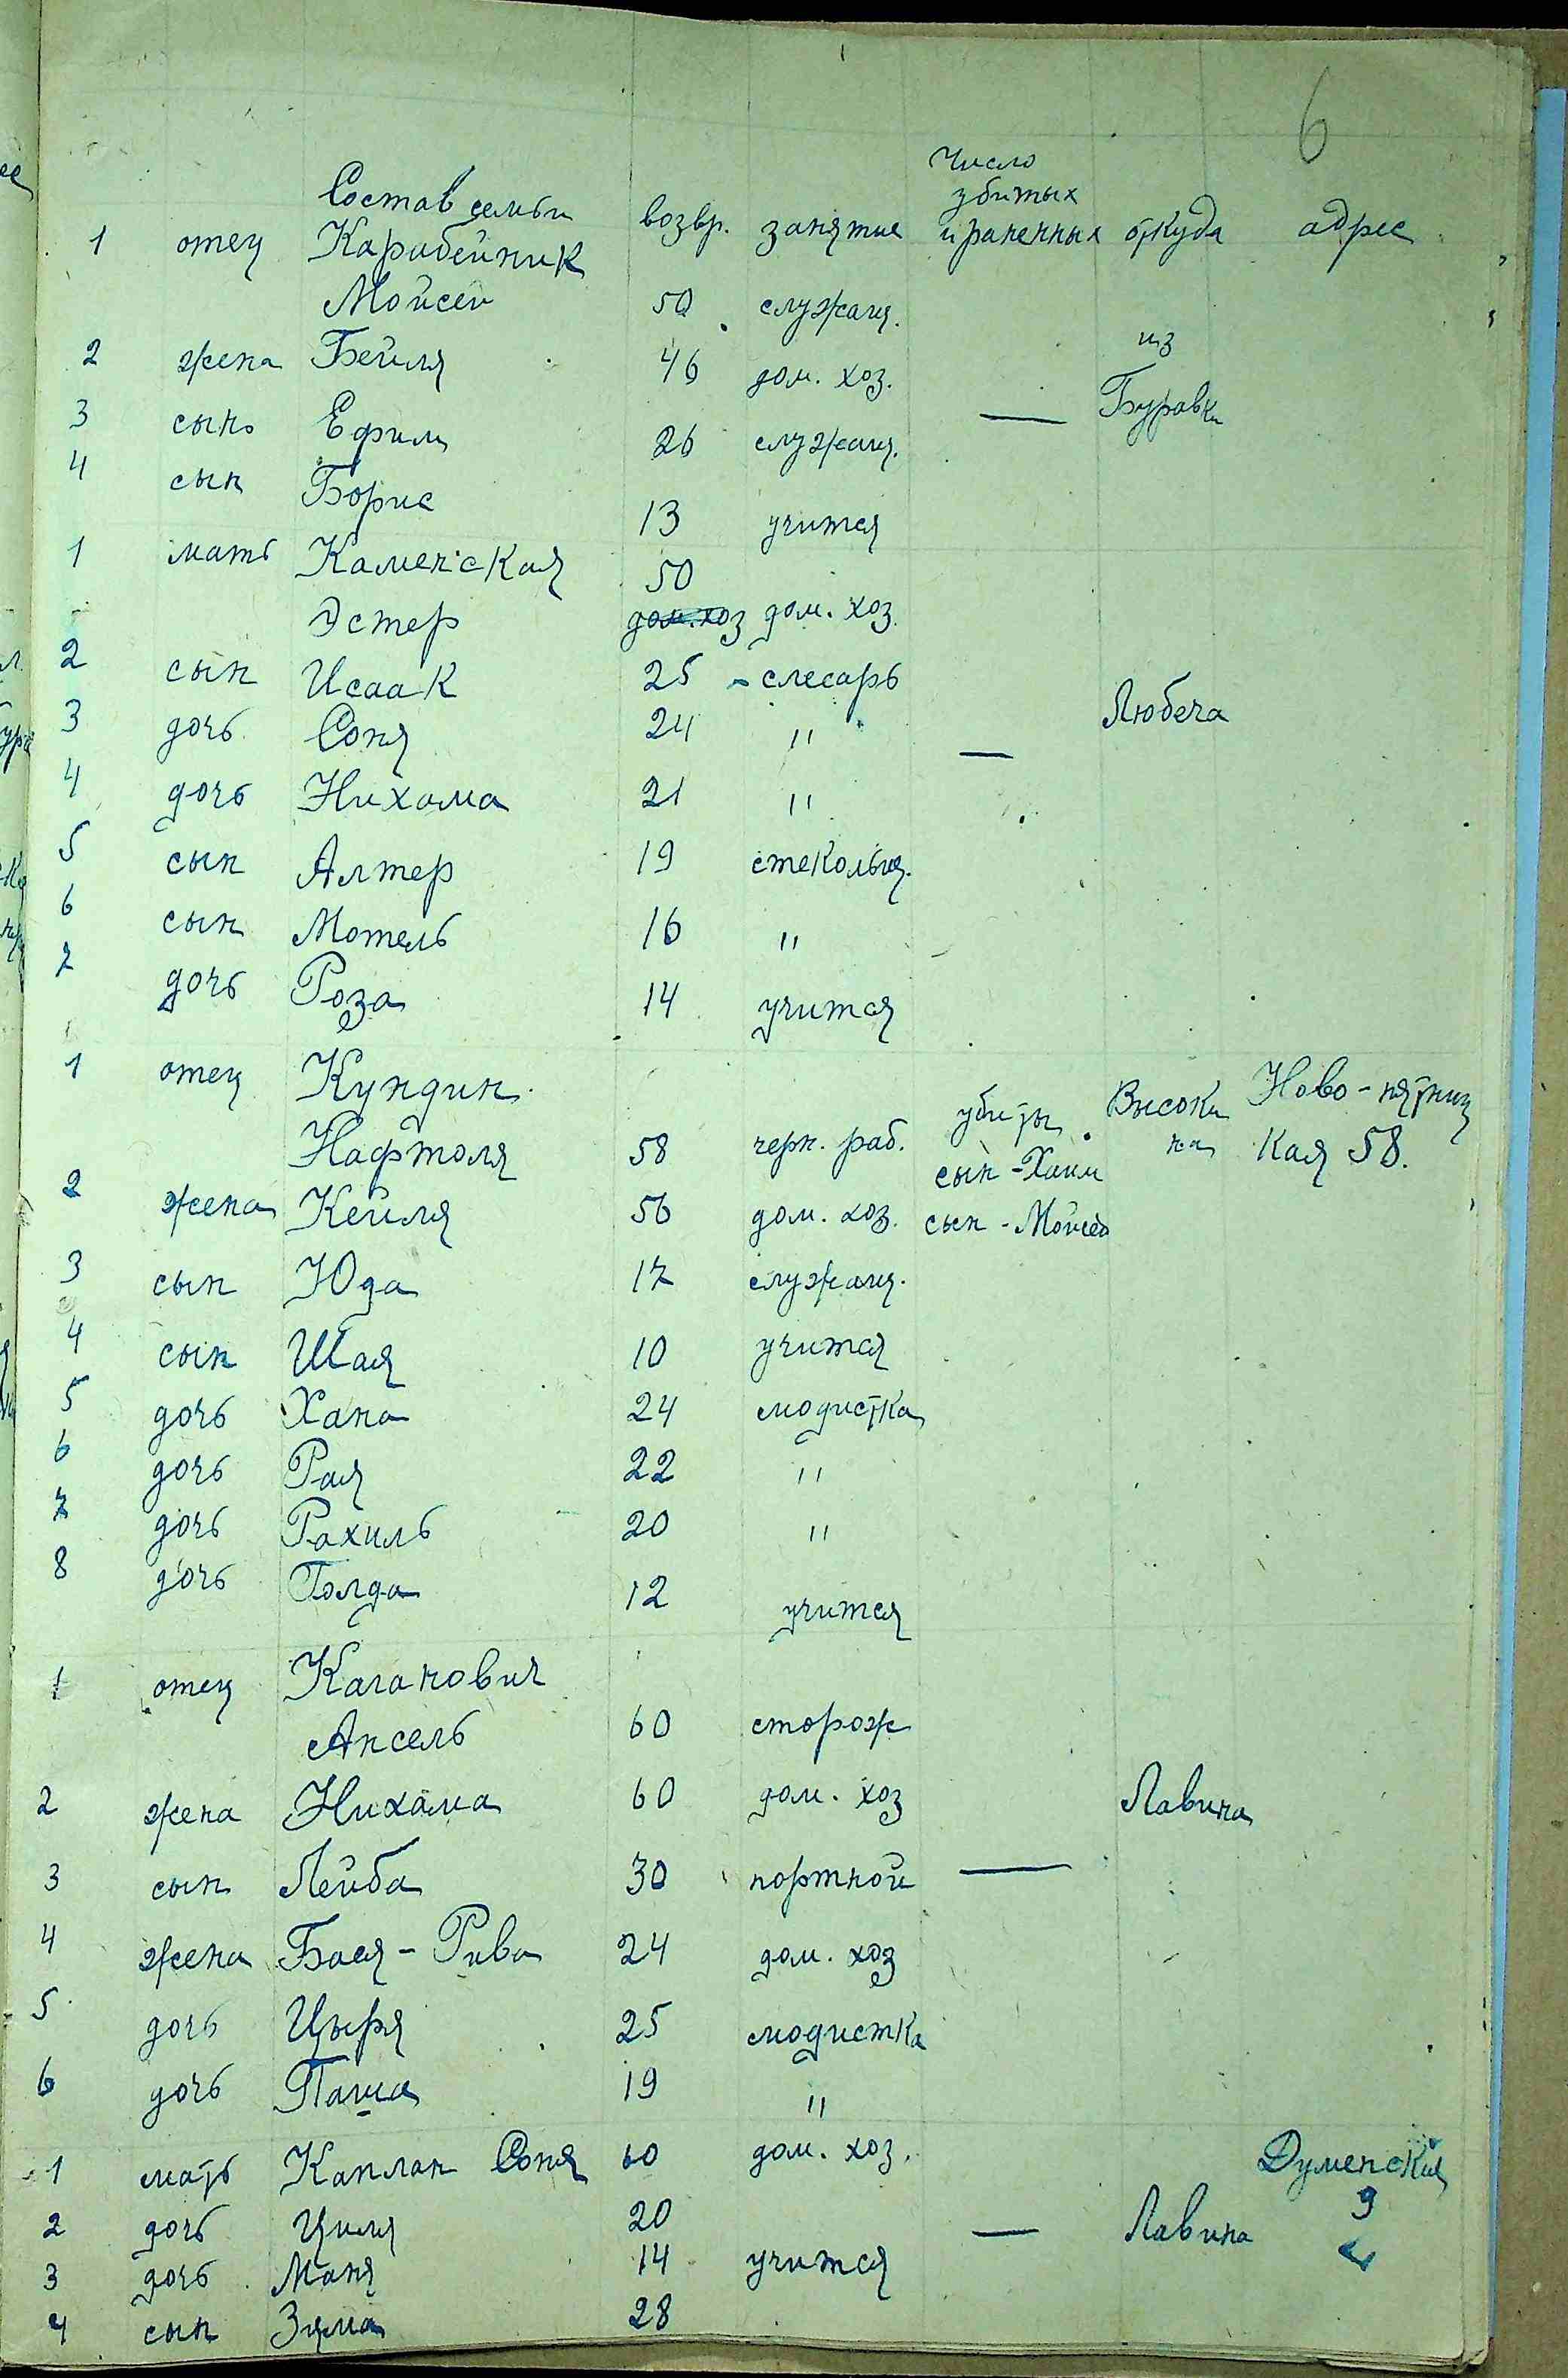 6
Состав семьи возвр. занятие Число убитых и раненных откуда адрес
1 отец Карабейник
Мойсей 50 служащ.
2 жена Бейля 46 дом. хоз. — из Буровки
3 сын Ефим 26 служащ.
4 сын Борис 13 учится
1 мать Каменская 50
Эстер дом. хоз
2 сын Исаак 25 - слесарь Любеча
3 дочь Соня 24 " —
4 дочь Нихама 21 "
5 сын Алтер 19 стекольщ.
6 сын Мотель 16 "
7 дочь Роза 14 учится
1 отец Кундин
Нафтоля 58 черн. раб. убиты сын - Хаим Высоки на Ново-пятниц кая 58.
2 жена Кейля 56 дом. хоз. сын - Мойсей
3 сын Юда 17 служащ.
4 сын Шая 10 учится
5 дочь Хана 24 модистка
6 дочь Рая 22 "
7 дочь Рахиль 20 "
8 дочь Голда 12 учится
1 отец Каганович
Ансель 60 сторож
2 жена Нихама 60 дом. хоз Лавина
3 сын Лейба 30 портной —
4 жена Бася - Рива 24 дом. хоз
5 дочь Цыря 25 модистка
6 дочь Паша 19 "
1 мать Каплан Соня 60 дом. хоз. Думенская
2 дочь Циля 20 — Лавина 9
3 дочь Маня 14 учится
4 сын Зяма 28